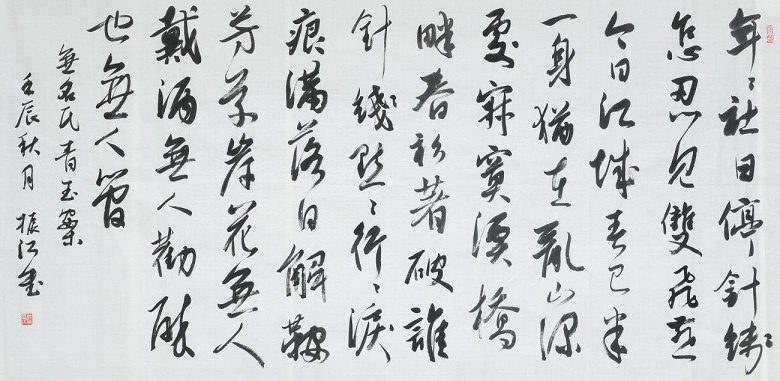 年々社日停針綫
怎忍見雙飛燕
今日江城春已半
一身猶在亂山深
處寂寞溪橋
畔春衫著破誰
針綫點々行々淚
痕滿落日解鞍
芳草岸花無人
戴酒無人勸醉
也無人管
無名氏青玉案
壬辰秋月 振江書